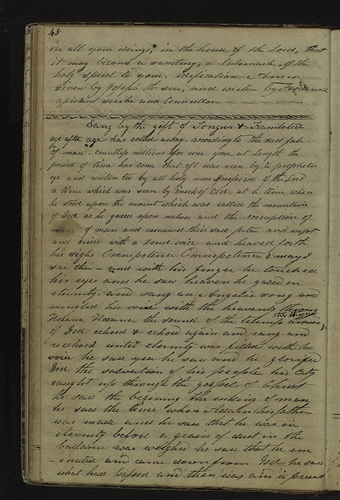 48
in all your doings in the house of the Lord, that
it may become a sanctuary a tabernacle of the
holy spirit to your edification Amen
Given by Joseph the seer, and written by
assistant scribe and Counsellor
Sang by the gift of Tongues & Translated
age after age has rolled away, according to the sad fate
of man countless millions for ever gone at length the
period of time has come that oft was seen by a prophetic
eye and written to by all holy men of the Lord
a time which was seen by Enoch of Old at a time when
he stood upon the mount which was called the mountain
of God as he gazed upon nature and the corruption of
of man and mourned their sad fate and wept
and cried with a loud voice and heaved forth
his sighs Omnipotence Omnipotence O may I
see thee and with his finger he touched
his eyes and he saw heaven he gazed on
eternity and sang an Angelic song and
mingled his voice with the heavenly throng
Hosanna Hosanna the sound of the trump around the throne
of God echoed & echoed again and rang and
reechoed until eternity was filled with his
voice he saw yea he saw and he glorified
God the salvation of his people his City
caught up through the gospel of Christ
he saw the begining the ending of man
he saw the time when Adam his father
was made and he saw that he was in
eternity before a grain of dust in the
ballance was weighed he saw that he em
enated and came down from God he saw
what had passed and then was and is present